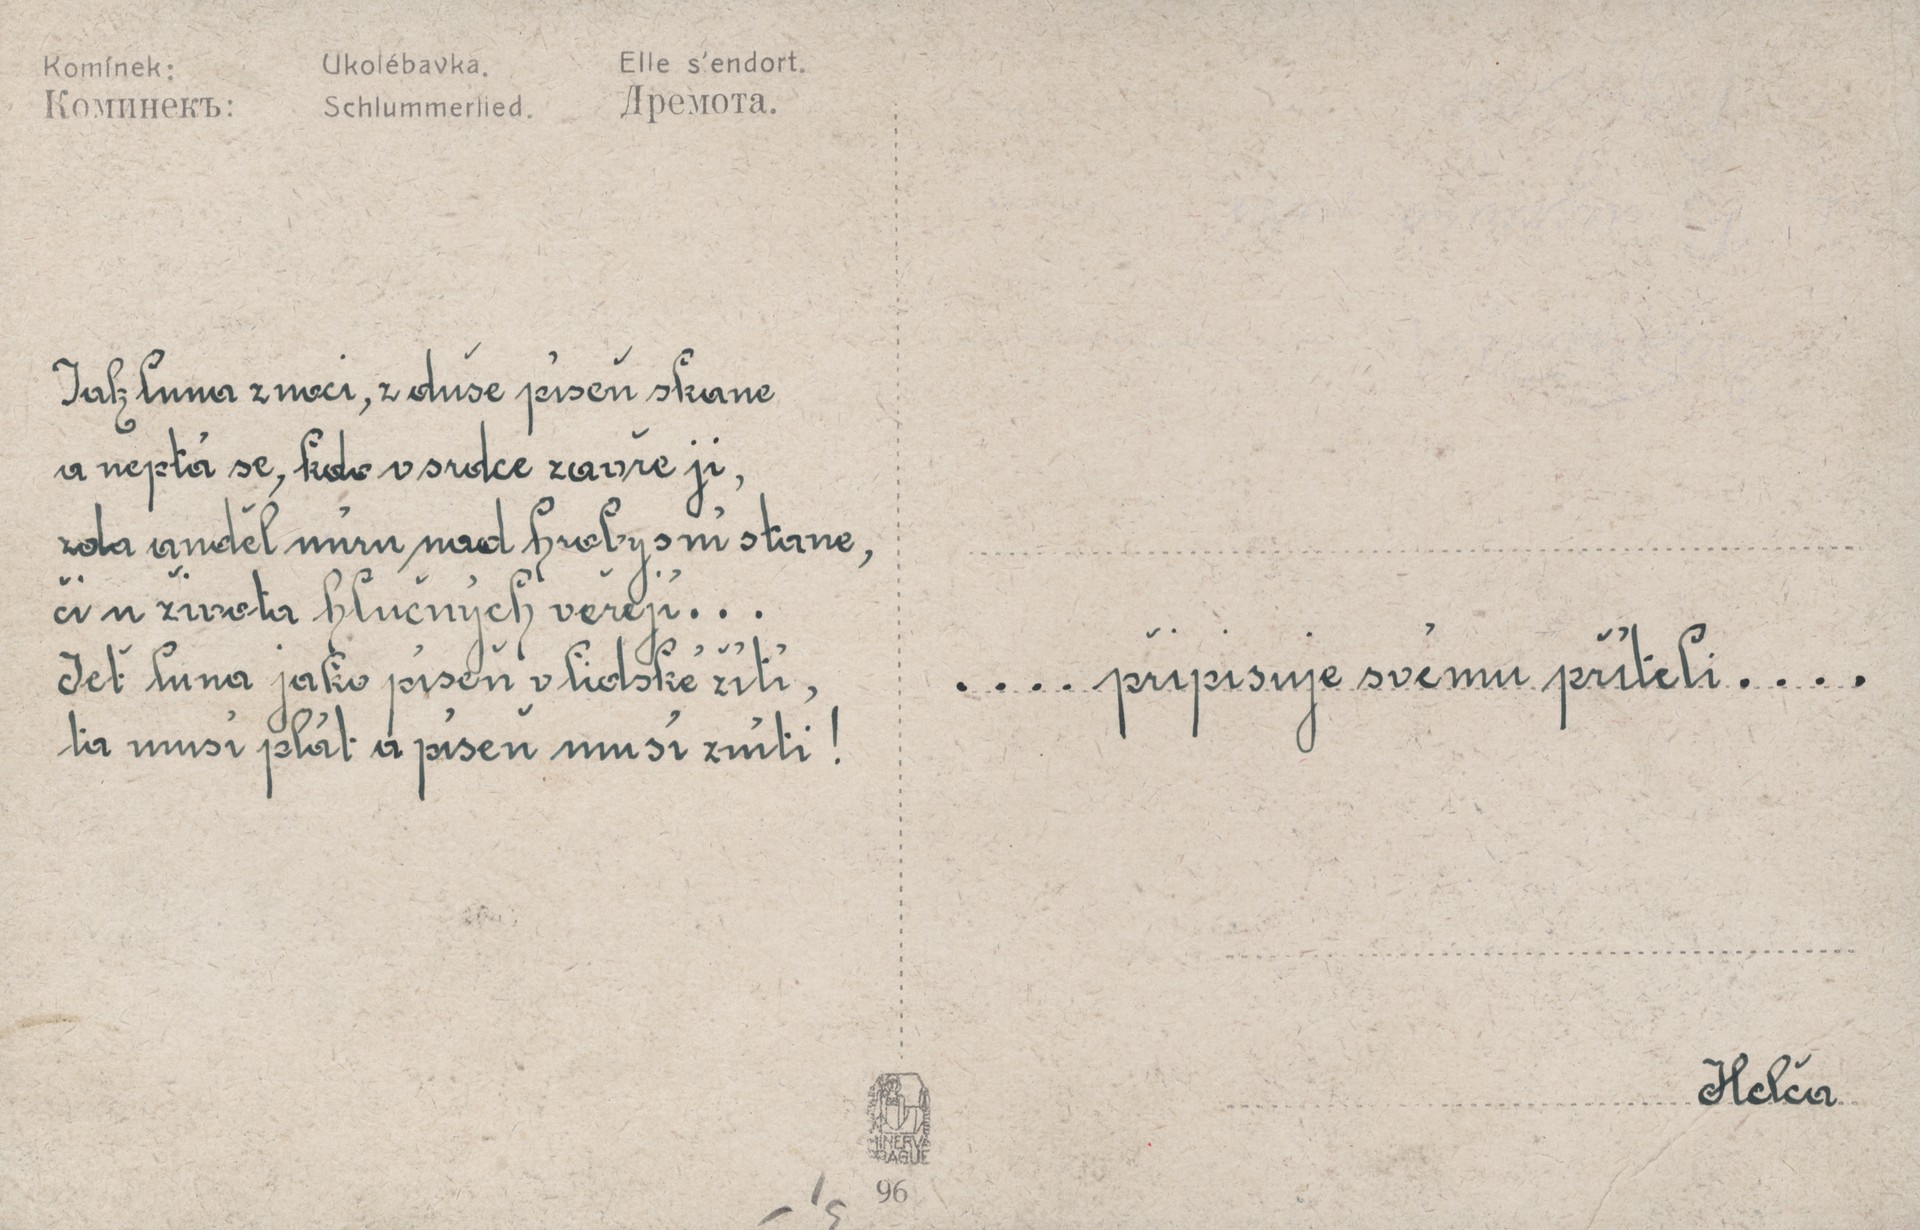 Komínek:
Коминекъ:
Ukolébavka.
Schlummerlied.
Elle s'endort.
Дремота.
Jak luna z noci, z duše píseň skane
a neptá se, kdo v srdce zavře ji,
zda anděl míru nad hroby sní stane,
či u života hlučných veřejí...
Jeť luna jako píseň v lidské žití,
ta musí plát a píseň musí zníti!
.... připisuje svému příteli....
Helča
MINERVA
PRAGUE
96